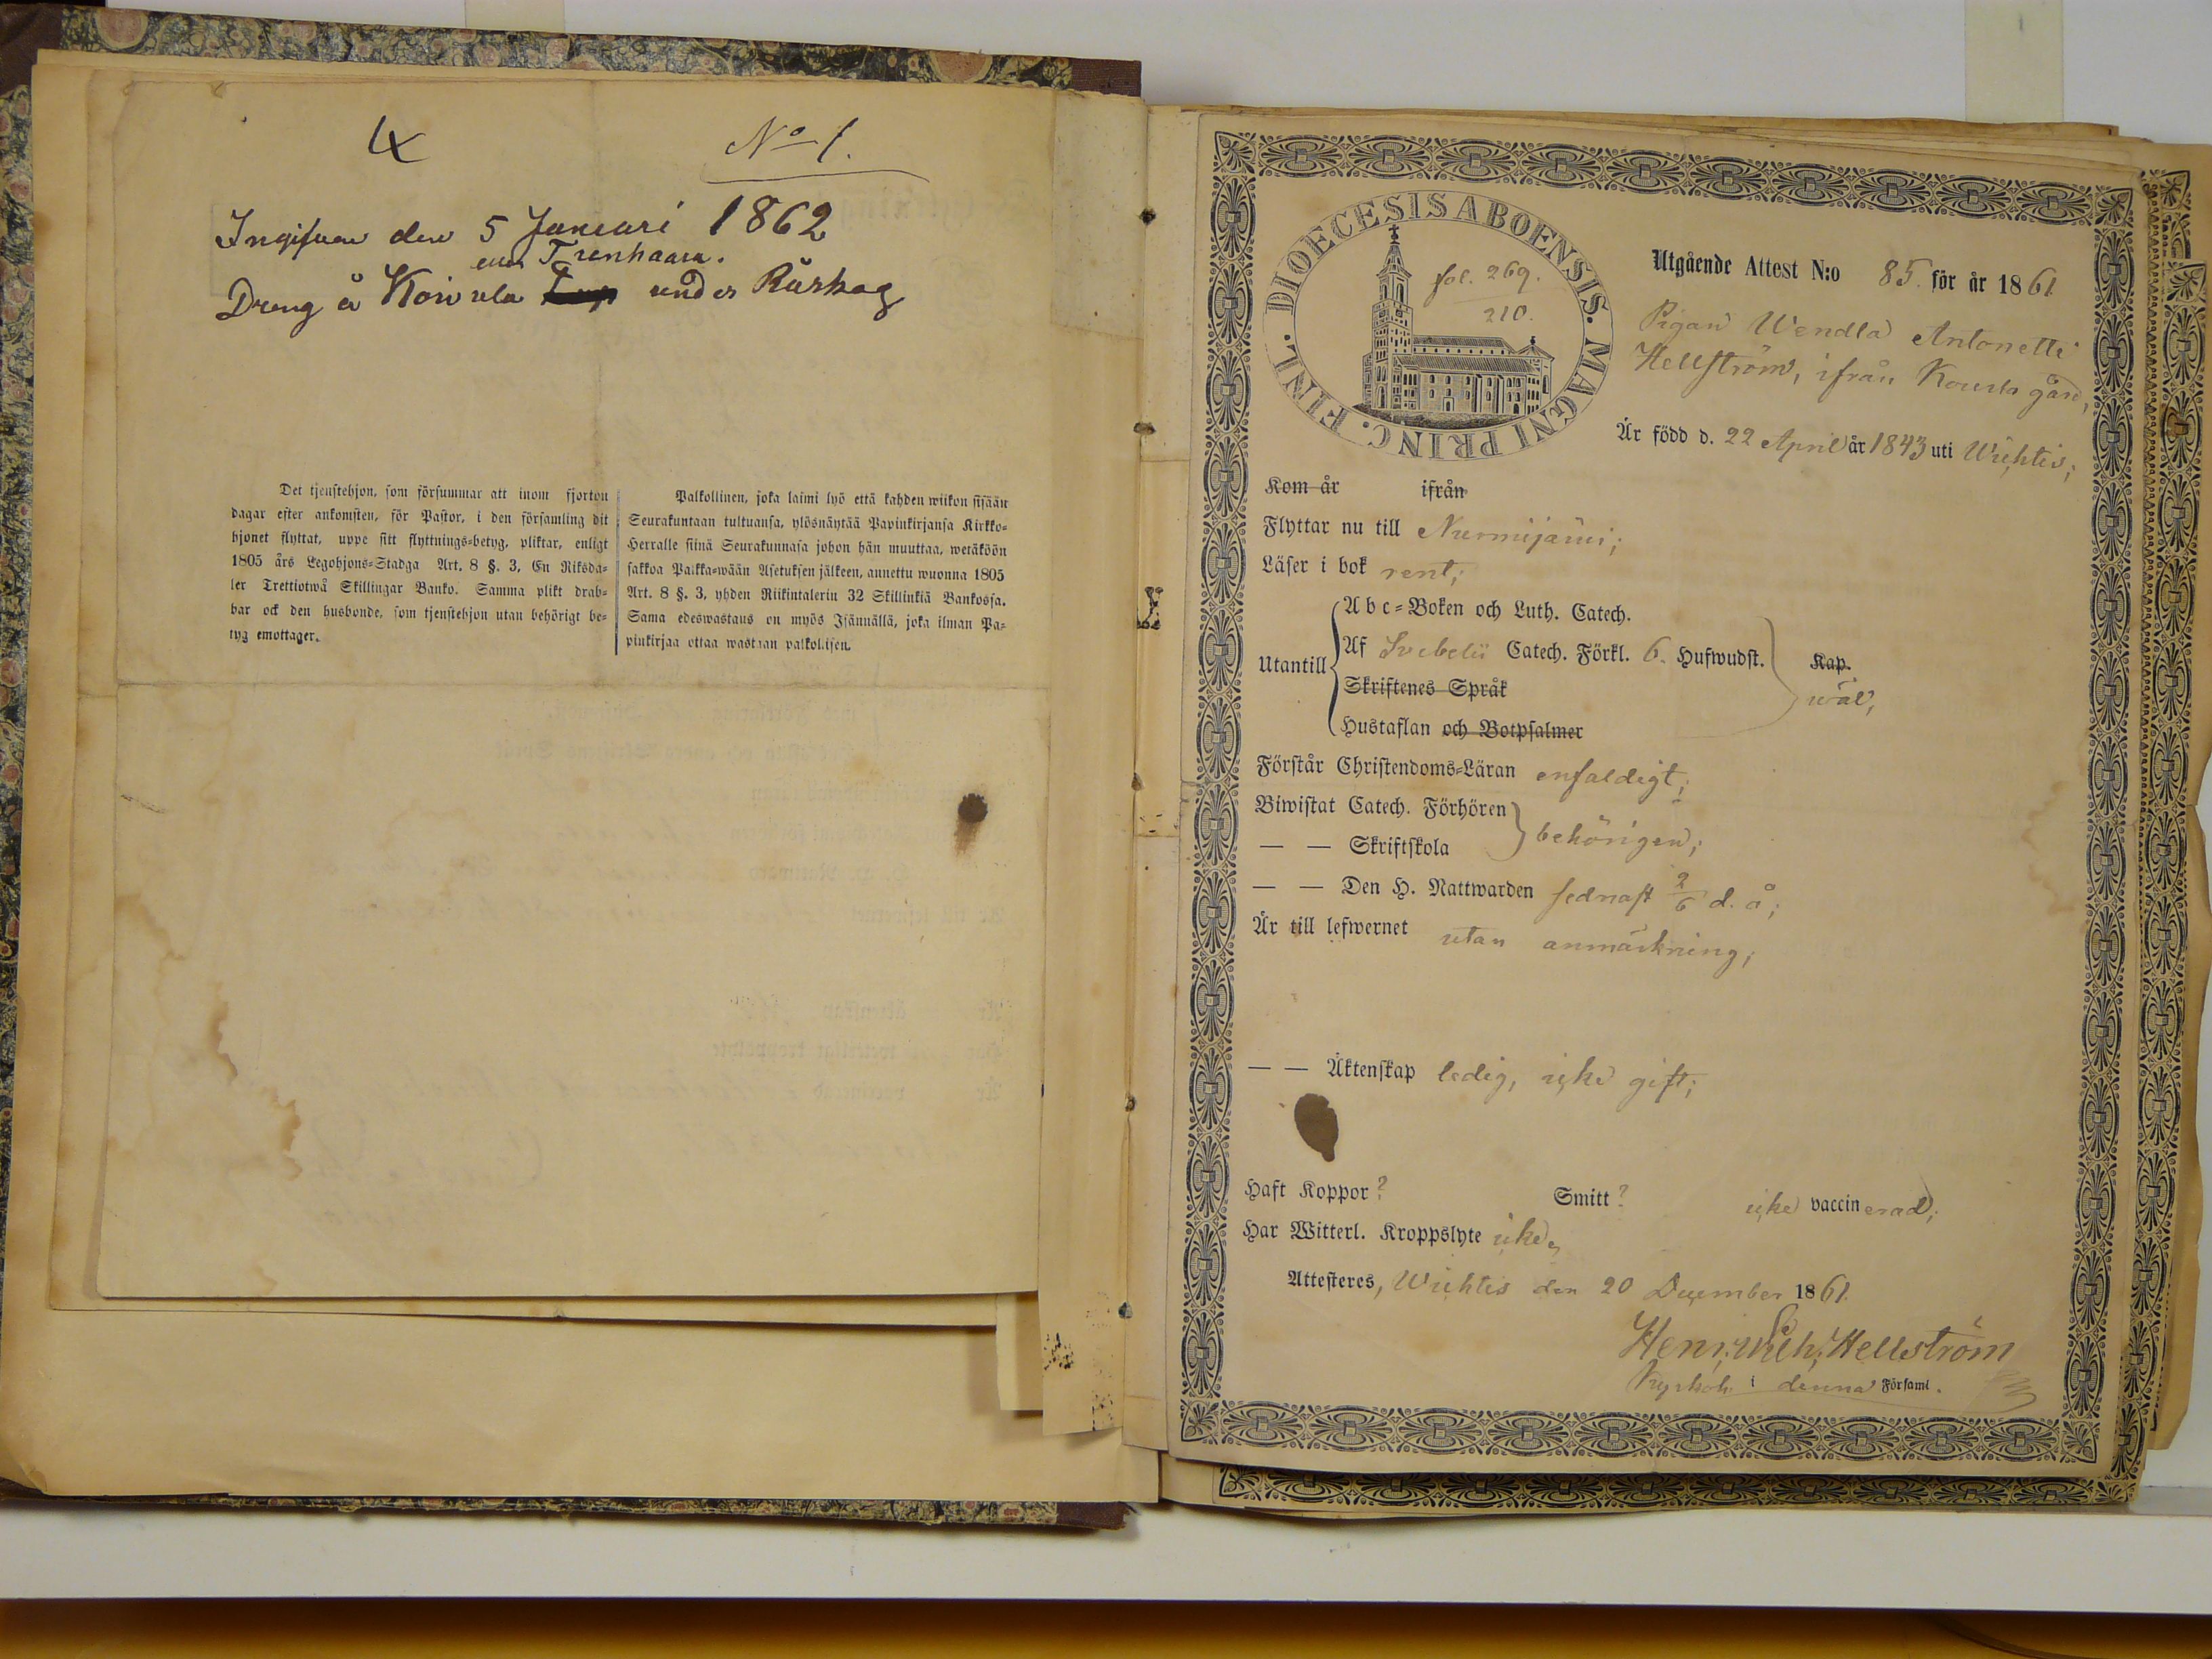 4 No 1.
Ingifven den 5 Januari 1862
Trenhaara.
Dreng å Koivula under Råskog
Det tjenstehjon, som försummar att inom fjorton
dagar efter ankomsten, för Pastor, i den församling dit
hjonet flyttat, uppe sitt flyttnings-betyg, pliktar, enligt
1805 års Legohjons-Stadga Art. 8 §. 3, En Riksda-
ler Trettiotwå Skillingar Banko. Samma plikt drab-
bar ock den husbonde, som tjenstehjon utan behörigt be-
tyg emottager.
Palkollinen, joka laimi lyö että kahden wiikon sisään
Seurakuntaan tultuansa, ylösnäytää Papinkirjansa Kirkko-
Herralle siinä Seurakunnasa johon hän muuttaa, wetäköön
sakkoa Paikka-wään Asetuksen jälkeen, annettu wuonna 1805
Art. 8 §. 3, yhden Riikintalerin 32 Skillinkiä Bankossa.
Sama edeswastaus on myös Isännällä, joka ilman Pa-
pinkirjaa ottaa wastaan palkolisen.
DIOECESIS ABOENSIS. MAGNI PRINC. FINL.
fol. 269.
210.
Utgående Attest N:o 85. för år 1861
Pigan Wendla Antonetta
Hellström, ifrån Kourla gård,
Är född d. 22 April år 1843 uti Wichtis;
Kom år ifrån
Flyttar nu till Nurmijärvi;
Läser i bok rent;
Abc-Boken och Luth. Catech.
Utantill Af Svebelii Catech. Förkl. 6. Hufwudst. Kap.
Skriftenes Språk wäl,
Hustaflan och Botpsalmer
Förstår Christendoms-Läran enfaldigt;
Biwistat Catech. Förhören
— — Skriftskola behörigen;
— — Den H. Nattwarden sednast 2/6 d. å;
Är till lefwernet utan anmärkning;
— — Äktenskap ledig, icke gift;
Haft Koppor? Smitt? icke vaccinerad;
Har Witterl. Kroppslyte icke,
Attesteres, Wichtis den 20 December 1861.
Henr. Wilh. Hellström
Kyrkoh. i denna Församl.